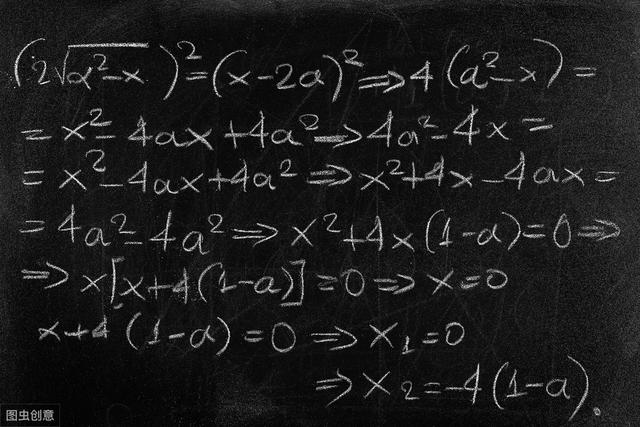 (2√(a²-x))²=(x-2a)²⇒4(a²-x)=
=x²-4ax+4a²⇒4a²-4x=
=x²-4ax+4a²⇒x²+4x-4ax=
=4a²-4a²⇒x²+4x(1-a)=0⇒
⇒x[x+4(1-a)]=0⇒x=0
x+4(1-a)=0⇒x₁=0
⇒x₂=-4(1-a).
图虫创意